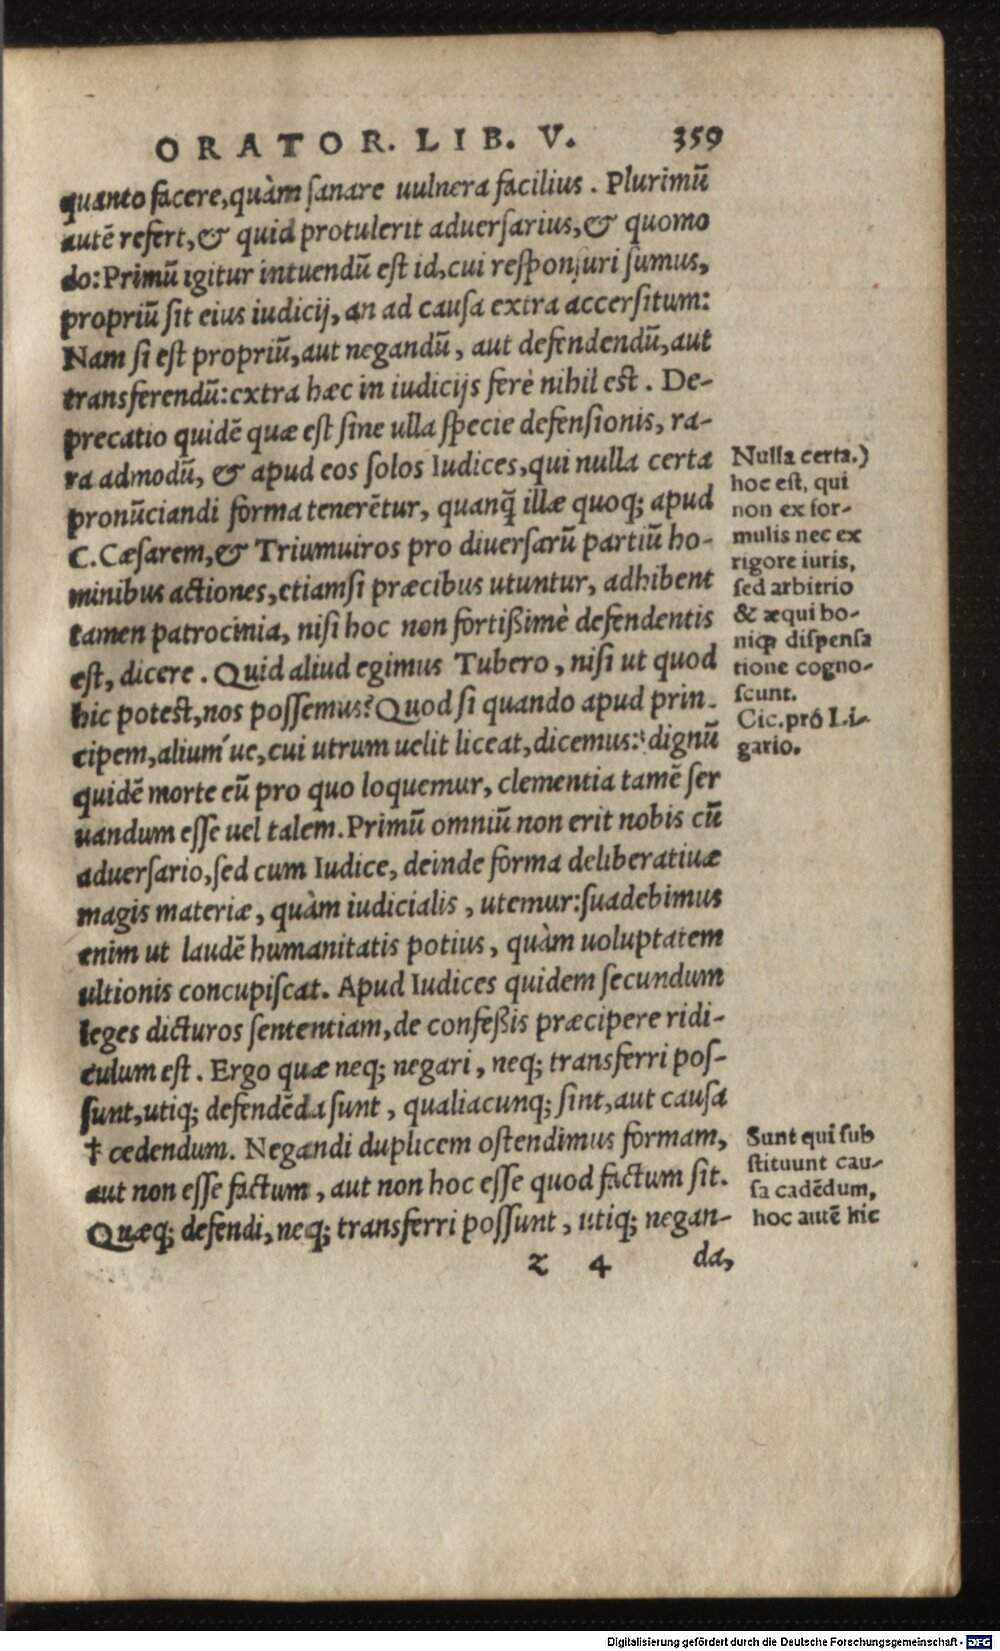 ORATOR. LIB. V. 359
quanto facere, quàm sanare uulnera facilius. Plurimũ
autẽ refert, & quid protulerit aduersarius, & quomo
do: Primũ igitur intuendũ est id, cui responsuri sumus,
propriũ sit eius iudicij, an ad causa extra accersitum:
Nam si est propriũ, aut negandũ, aut defendendũ, aut
transferendũ: extra hæc in iudicijs ferè nihil est. De-
precatio quidẽ quæ est sine ulla specie defensionis, ra-
ra admodũ, & apud eos solos Iudices, qui nulla certa
pronũciandi forma tenerẽtur, quanq̃ illæ quoq; apud
C. Cæsarem, & Triumuiros pro diuersarũ partiũ ho-
minibus actiones, etiamsi præcibus utuntur, adhibent
tamen patrocinia, nisi hoc non fortißimè defendentis
est, dicere. Quid aliud egimus Tubero, nisi ut quod
hic potest, nos possemus? Quod si quando apud prin-
cipem, alium ́ue, cui utrum uelit liceat, dicemus: dignũ
quidẽ morte eũ pro quo loquemur, clementia tamẽ ser
uandum esse uel talem. Primũ omniũ non erit nobis cũ
aduersario, sed cum Iudice, deinde forma deliberatiuæ
magis materiæ, quàm iudicialis, utemur: suadebimus
enim ut laudẽ humanitatis potius, quàm uoluptatem
ultionis concupiscat. Apud Iudices quidem secundum
leges dicturos sententiam, de confeßis præcipere ridi-
culum est. Ergo quæ neq; negari, neq; transferri pos-
sunt, utiq; defendẽda sunt, qualiacunq; sint, aut causa
† cedendum. Negandi duplicem ostendimus formam,
aut non esse factum, aut non hoc esse quod factum sit.
Quæq; defendi, neq; transferri possunt, utiq; negan-
z 4 da,
Nulla certa.)
hoc est, qui
non ex for-
mulis nec ex
rigore iuris,
sed arbitrio
& æqui bo-
niq; dispensa
tione cogno-
scunt.
Cic. pró Li-
gario.
Sunt qui sub
stituunt cau-
sa cadẽdum,
hoc autẽ hic
Digitalisierung gefördert durch die Deutsche Forschungsgemeinschaft - DFG